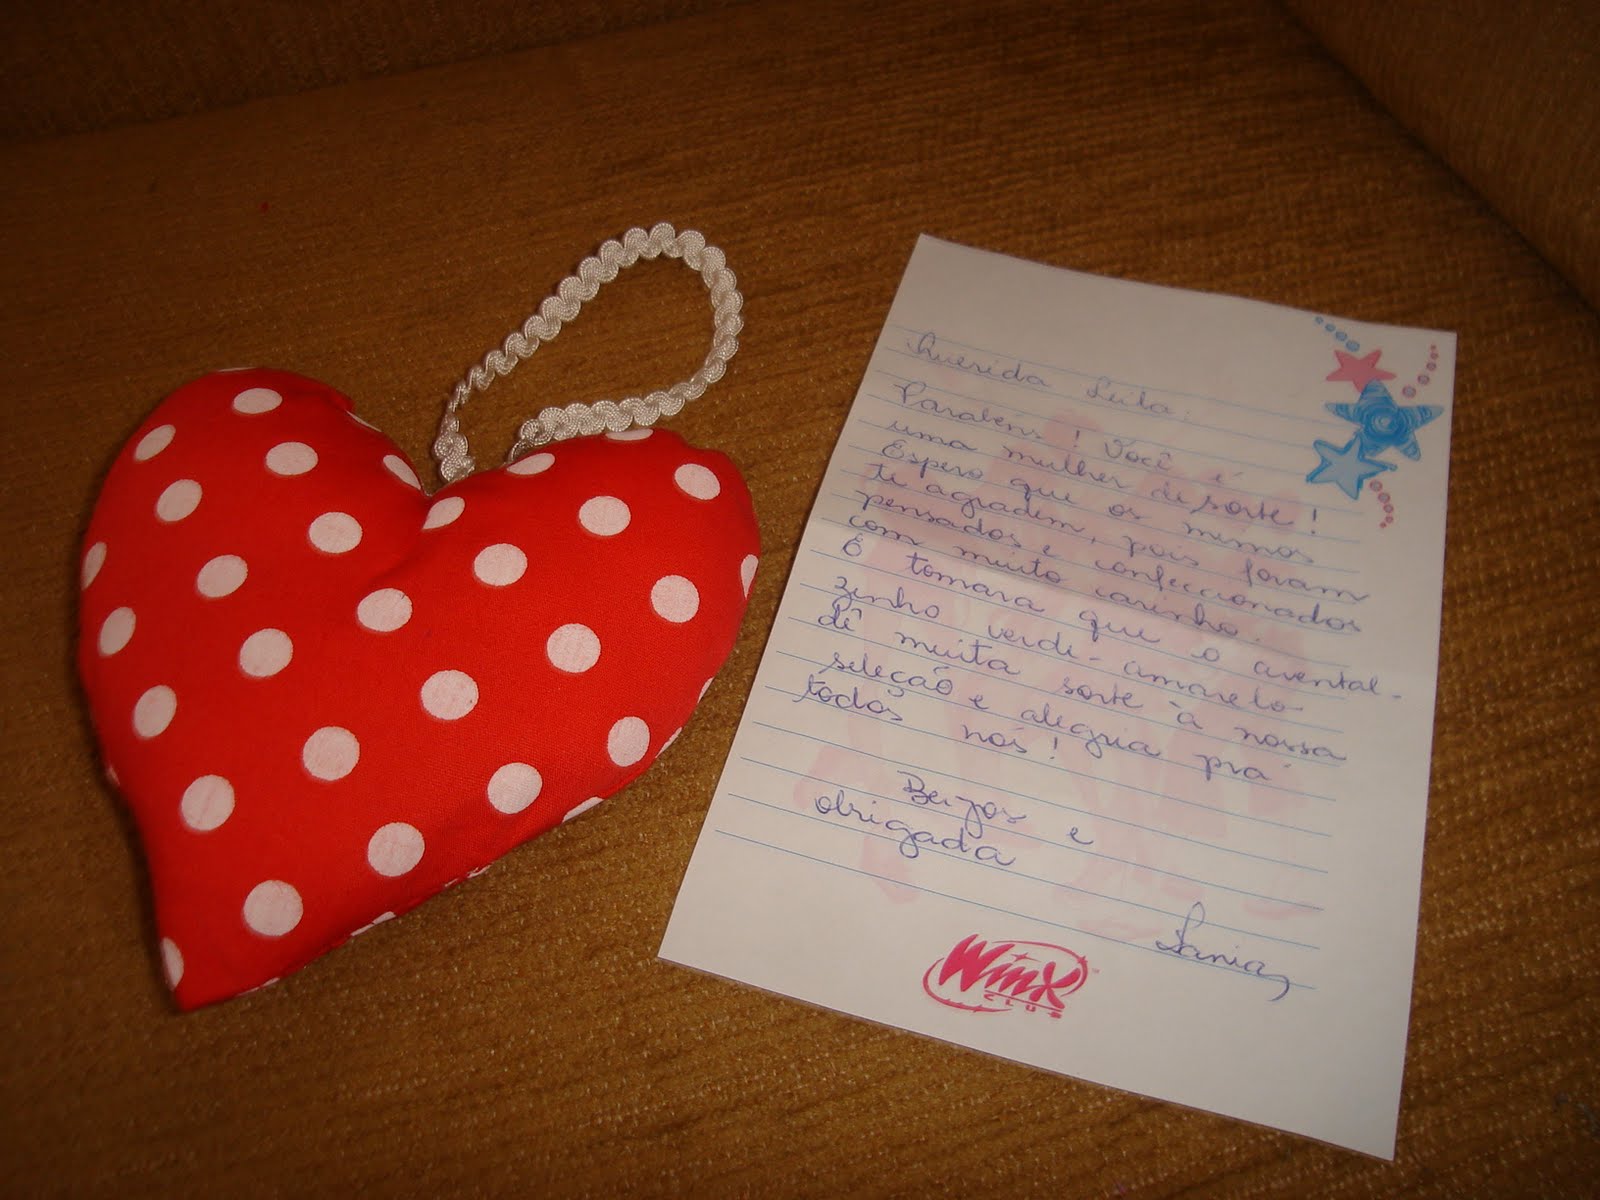 Querida Leila:
Parabéns! Você é
uma mulher de sorte!
Espero que os mimos
te agradem, pois foram
pensados e confeccionados
com muito carinho.
E tomara que o avental-
zinho verde-amarelo
dê muita sorte à nossa
seleção e alegria pra
todos nós!
Beijos e
obrigada
Sania
WinX
CLUB